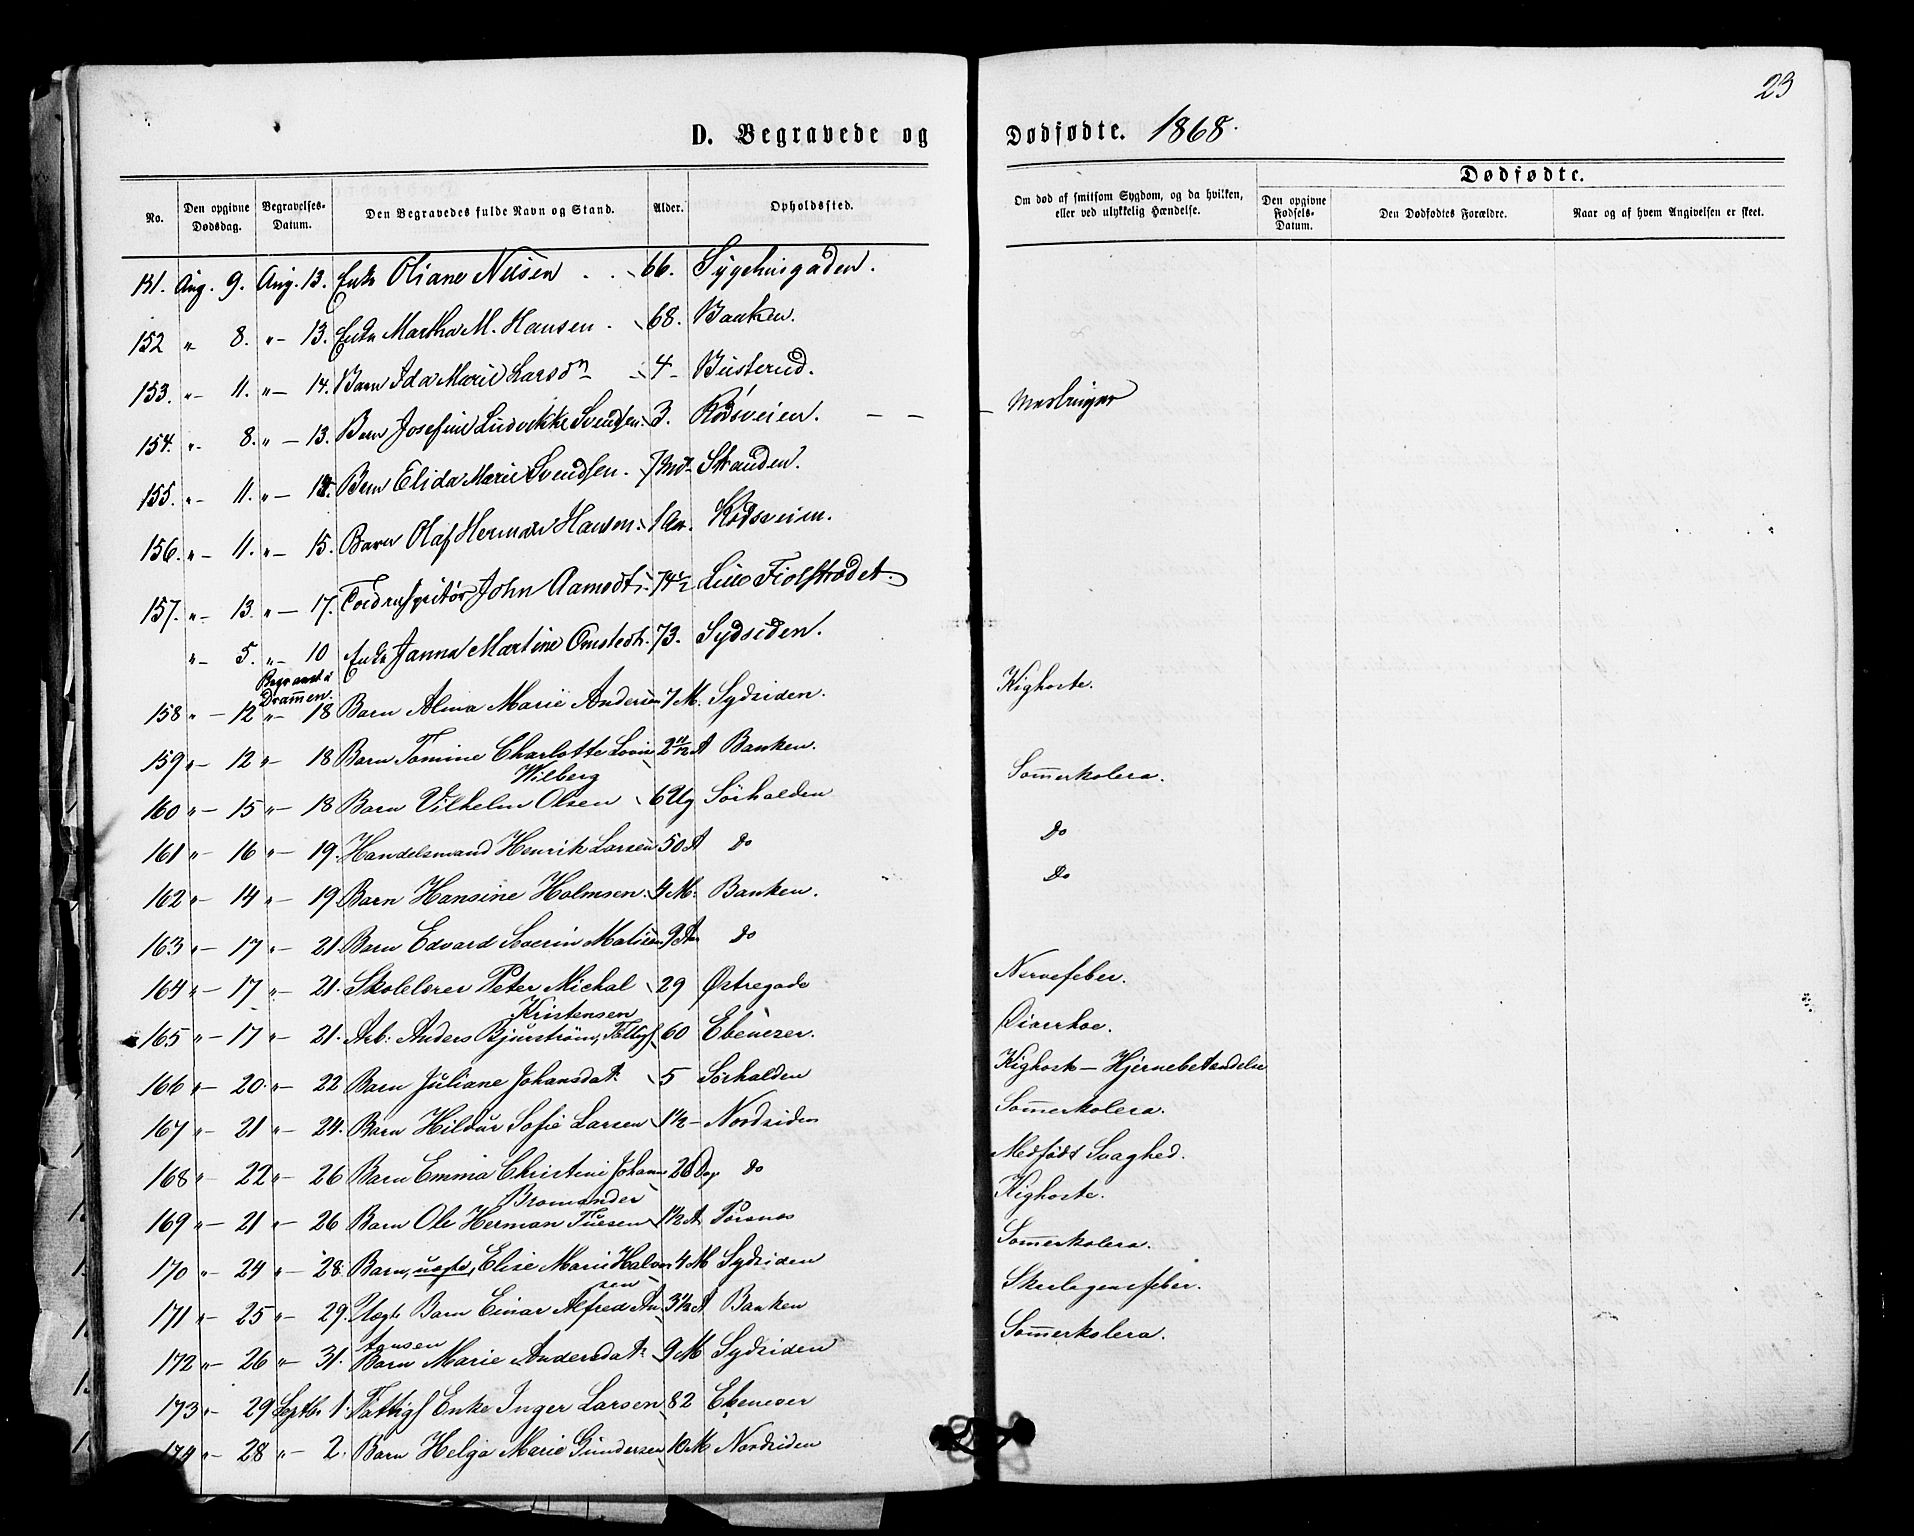 23
D. Begravede og Dødfødte. 1868.
Dødfødte.
No. Den opgivne Dødsdag. Begravelses-Datum. Den Begravedes fulde Navn og Stand. Alder. Opholdssted. Om død af smitsom Sygdom, og da hvilken, eller ved ulykkelig Hændelse. Den opgivne Fødsels-Datum. Den Dødfødtes Forældre. Naar og af hvem Angivelsen er skeet.
151. Aug. 9. Aug. 13. Enke Oliane Nilsen 66. Sygehusgaden.
152 " 8. " 13. Enke Martha M. Hansen. 68. Banken.
153. " 11. " 14. Barn Ida Marie Larsdn 4 Busterud.
154. " 8. " 13. Barn Josefine Ludvikke Svendsen. 3. Rødsveien. Meslinger
155. " 11. " Barn Elida Marie Svendsen. 7 Md Stranden.
156. " 11. " 15. Barn Olaf Herman Hansen. 1 Aar. Rødsveien.
157. " 13. " 17. John Aamodt. 74½ Lille Fiolstrædet.
" 5. " 10 Enke Janna Martine Omstedt. 73. Sydsiden.
Begravet i Drammen.
158 " 12 " 18 Barn Alma Marie Andersen 7 M. Sydsiden. Kighoste.
159 " 12 " 18 Barn Tomine Charlotte Lovise 2 11/12 A Banken.
Wilberg
160 " 15 " 18 Barn Vilhelm Olsen 6 Ug Sørhalden Somerkolera.
161 " 16 " 19. Handelsmand Henrik Larsen 50 A do do
162 " 14 " 19 Barn Hansine Holmsen. 4 M. Banken. do
163 " 17 " 21. Barn Edvard Severin 9 A do
164 " 17 " 21. Skolelærer Peter Michal 29 Østregade Nervefeber.
Kristensen
165 " 17 " 21. Arb: Anders Bjurstrøm, Fattigf 60 Ebenezer. Diarrhoe.
166 " 20. " 22 Barn Juliane Johansdat. 5 Sørhalden Kighoste – Hjernebetændelse
167 " 21 " 24. Barn Hildur Sofie Larsen 1½ Nordsiden Somerkolera.
168 " 22 " 26 Barn Emma Christine Johanne 26 Dag do Medfødt Svaghed.
Bromander
169 " 21 " 26 Barn Ole Herman 1½ A Torsnes Kighoste.
170 " 24 " 28. Barn, uægte, Elise Marie Halvor 4 M Sydsiden Somerkolera.
sen
171 " 25 " 29. Uægt. Barn Einar Alfred 3½ A Banken Skarlagensfeber.
172 " 26 " 31. Barn Marie Andersdat. 9 M Sydsiden Somerkolera.
173 " 29 Septb. 1. Fattigf Enke Inger Larsen 82 Ebenezer
174 " 28 " 2. Barn Helga Marie Gundersen 10 M Nordsiden